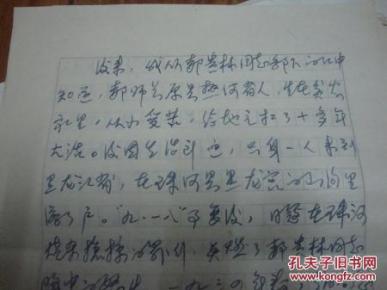 后来，我从郭贵林同志部下的口中
知道，郭师长原是热河省人，生在贫农
家里，从小受苦，给地主扛了十多年
大活。后因生活所迫，只身一人来到
黑龙江省，在珠河县黑龙宫的山沟里
落了户。“九·一八”事变后，日寇在珠河
烧杀抢掠的罪行，
郭贵林同志
孔夫子旧书网